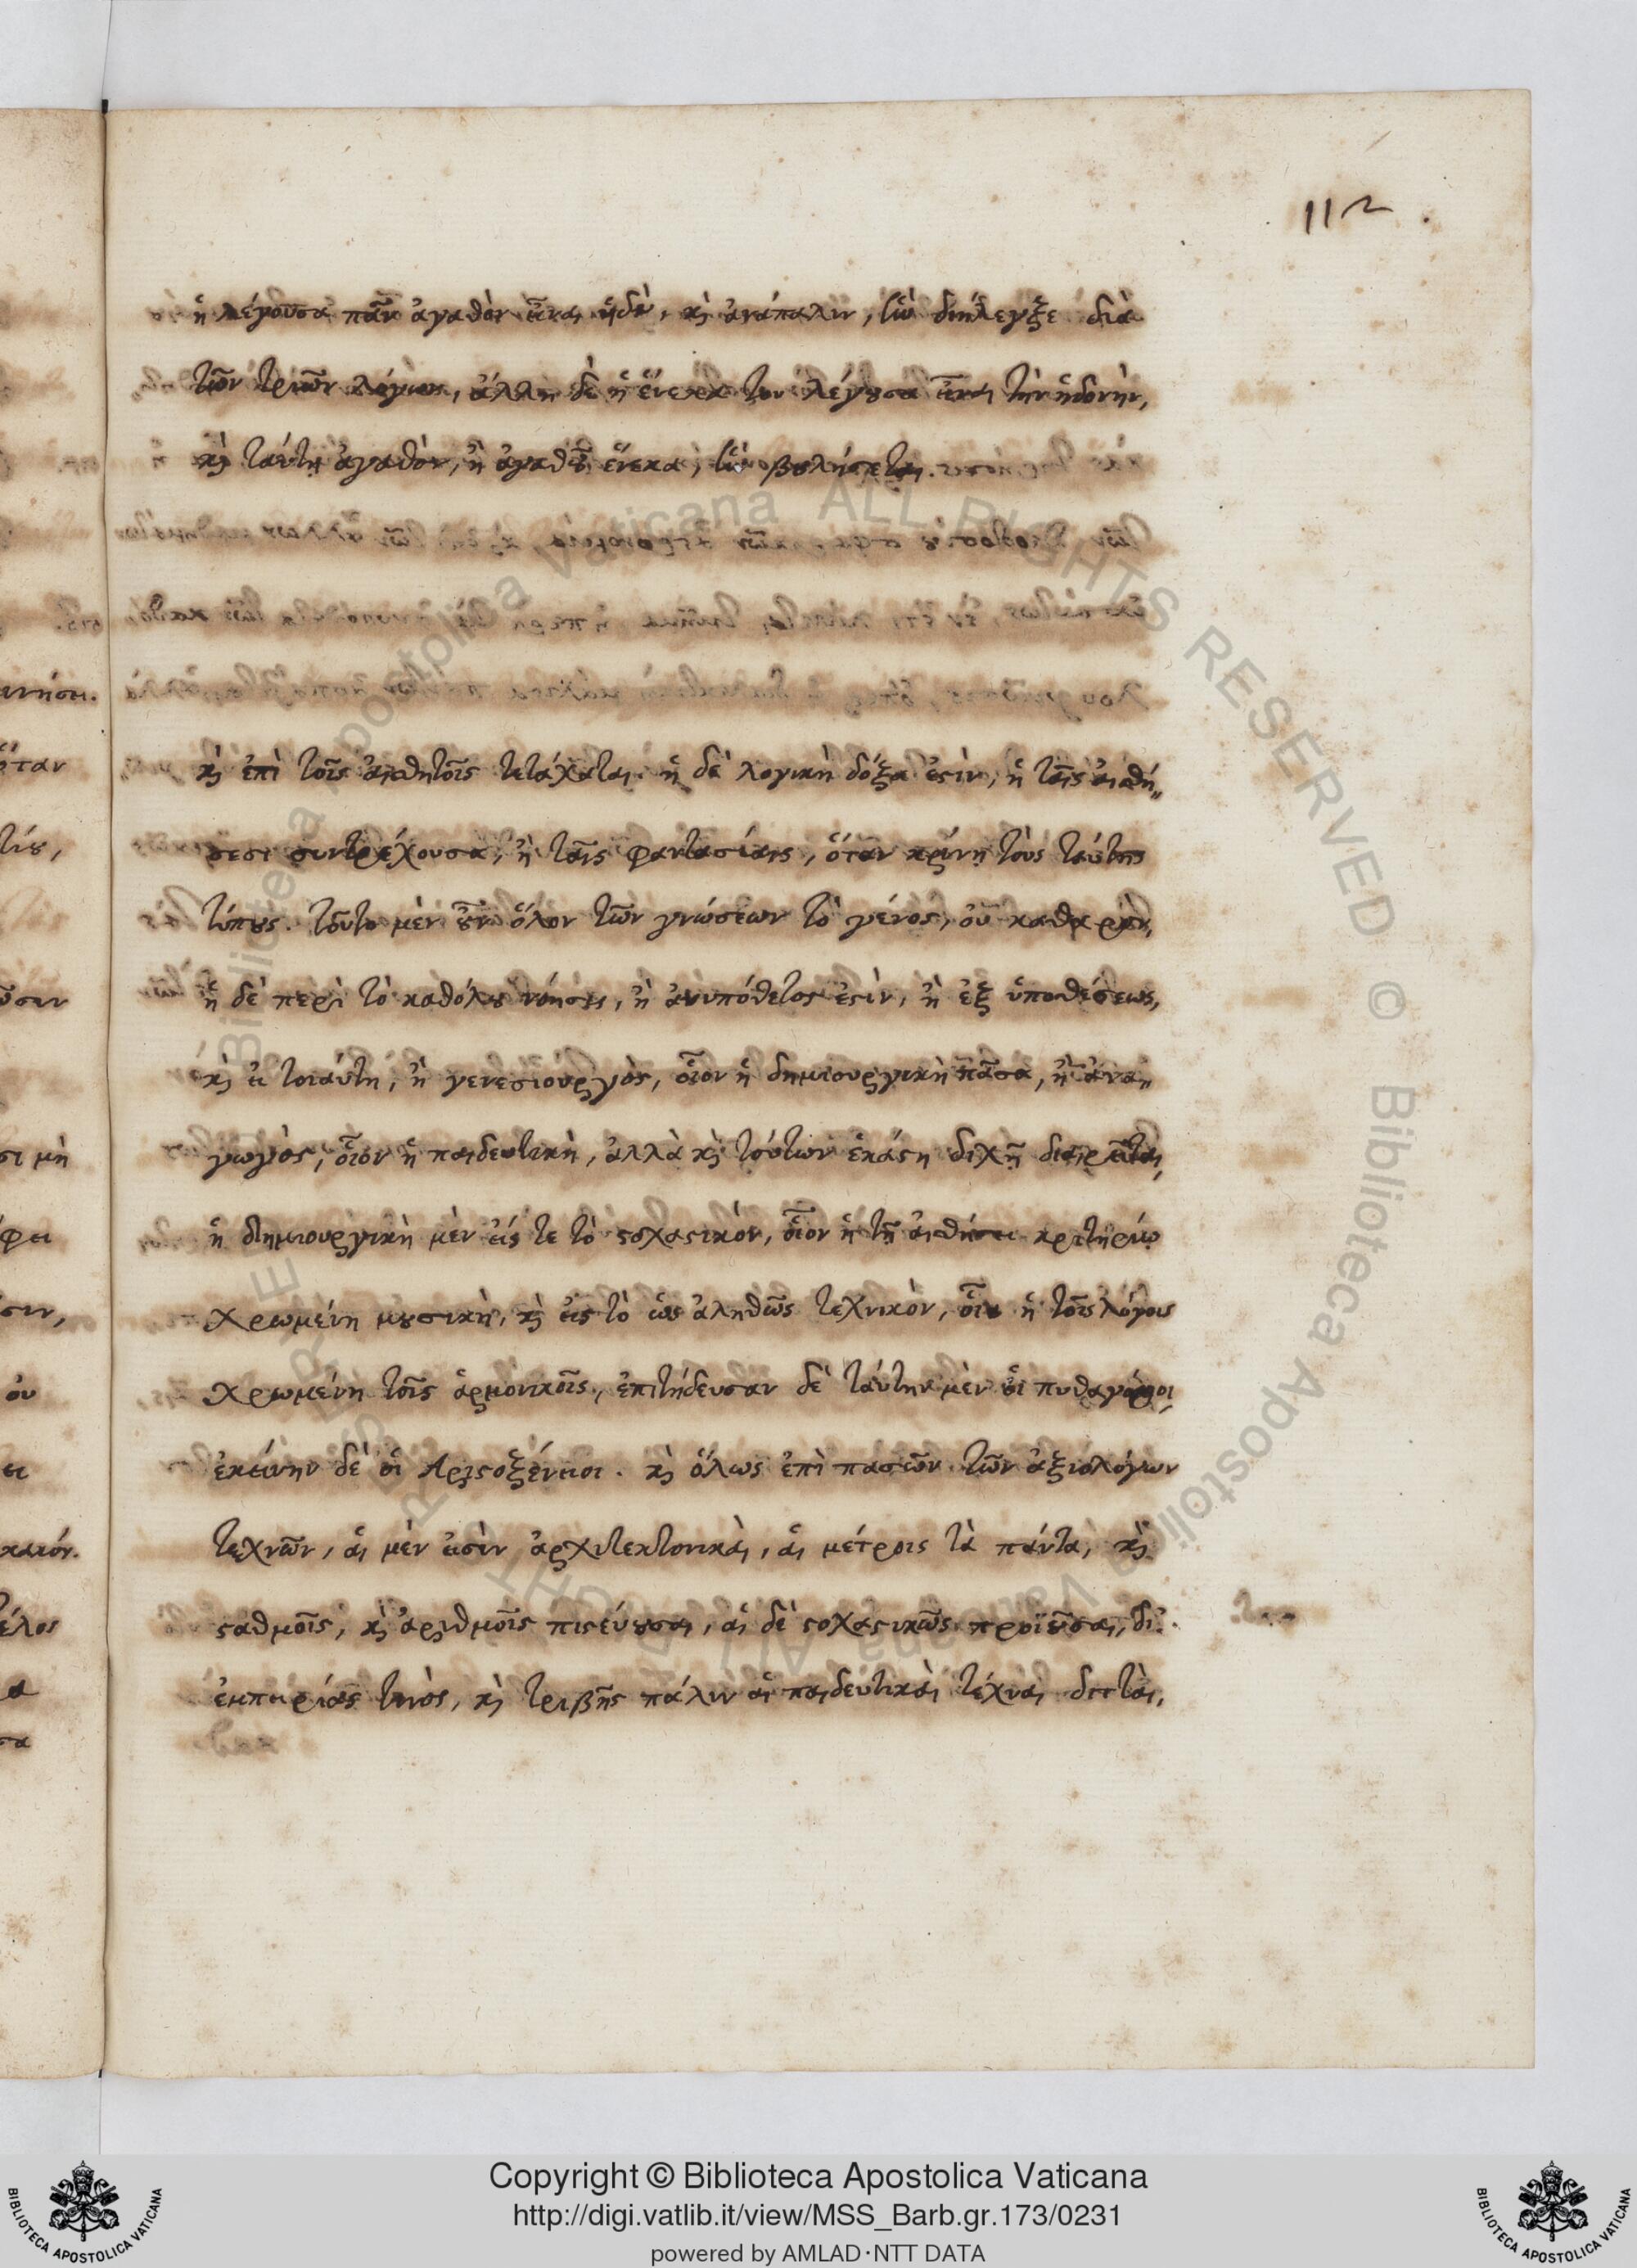 112.
ἡ λέγουσα πᾶν ἀγαθὸν εἶναι ἡδὺ, καὶ ἀνάπαλιν, ἣν διήλεγξε διὰ
τῶν τριῶν λόγων, ἄλλη δὲ ἡ ἕνεκα του λέγουσα εἶναι τὴν ἡδονὴν,
καὶ ταύτῃ ἀγαθὸν, ἢ ἀγαθοῦ ἕνεκα, ἣν βουλήσεται.
καὶ ἐπὶ τοῖς αἰσθητοῖς τετάχαται. ἡ δὲ λογικὴ δόξα ἐστὶν, ἡ ταῖς αἰσθή„
σεσι συντρέχουσα, ἢ ταῖς φαντασίαις, ὅταν κρίνῃ τοὺς ταύτης
τύπους. τοῦτο μὲν οὖν ὅλον τῶν γνώσεων τὸ γένος, οὐ καθαρὸν,
ἡ δὲ περὶ τὸ καθόλου νόησις, ἢ ἀνυπόθετος ἐστὶν, ἢ ἐξ ὑποθέσεως,
καὶ εἰ τοιαύτη, ἢ γενεσιουργὸς, οἷον ἡ δημιουργικὴ πᾶσα, ἢ ἀνα„
γωγὸς, οἷον ἡ παιδευτικὴ, ἀλλὰ καὶ τούτων ἑκάστη διχῇ διαιρεῖται,
ἡ δημιουργικὴ μὲν εἴς τε τὸ στοχαστικὸν, οἷον ἡ τῇ αἰσθήσει κριτηρίῳ
χρωμένη μουσικὴ, καὶ εἰς τὸ ὡς ἀληθῶς τεχνικὸν, οἷον ἡ τοῖς λόγοις
χρωμένη τοῖς ἁρμονικοῖς, ἐπιτήδευσαν δὲ ταύτην μὲν οἱ πυθαγόρειοι,
ἐκείνην δὲ οἱ Ἀριστοξένειοι. καὶ ὅλως ἐπὶ πασῶν τῶν ἀξιολόγων
τεχνῶν, αἱ μὲν εἰσὶν ἀρχιτεκτονικαὶ, αἱ μέτροις τὰ πάντα, καὶ
σταθμοῖς, καὶ ἀριθμοῖς πιστεύουσαι, αἱ δὲ στοχαστικῶς προϊοῦσαι, δι'
ἐμπειρίας τινὸς, καὶ τριβῆς πάλιν αἱ παιδευτικαὶ τέχναι διτταὶ,
Copyright © Biblioteca Apostolica Vaticana
http://digi.vatlib.it/view/MSS_Barb.gr.173/0231
powered by AMLAD·NTT DATA